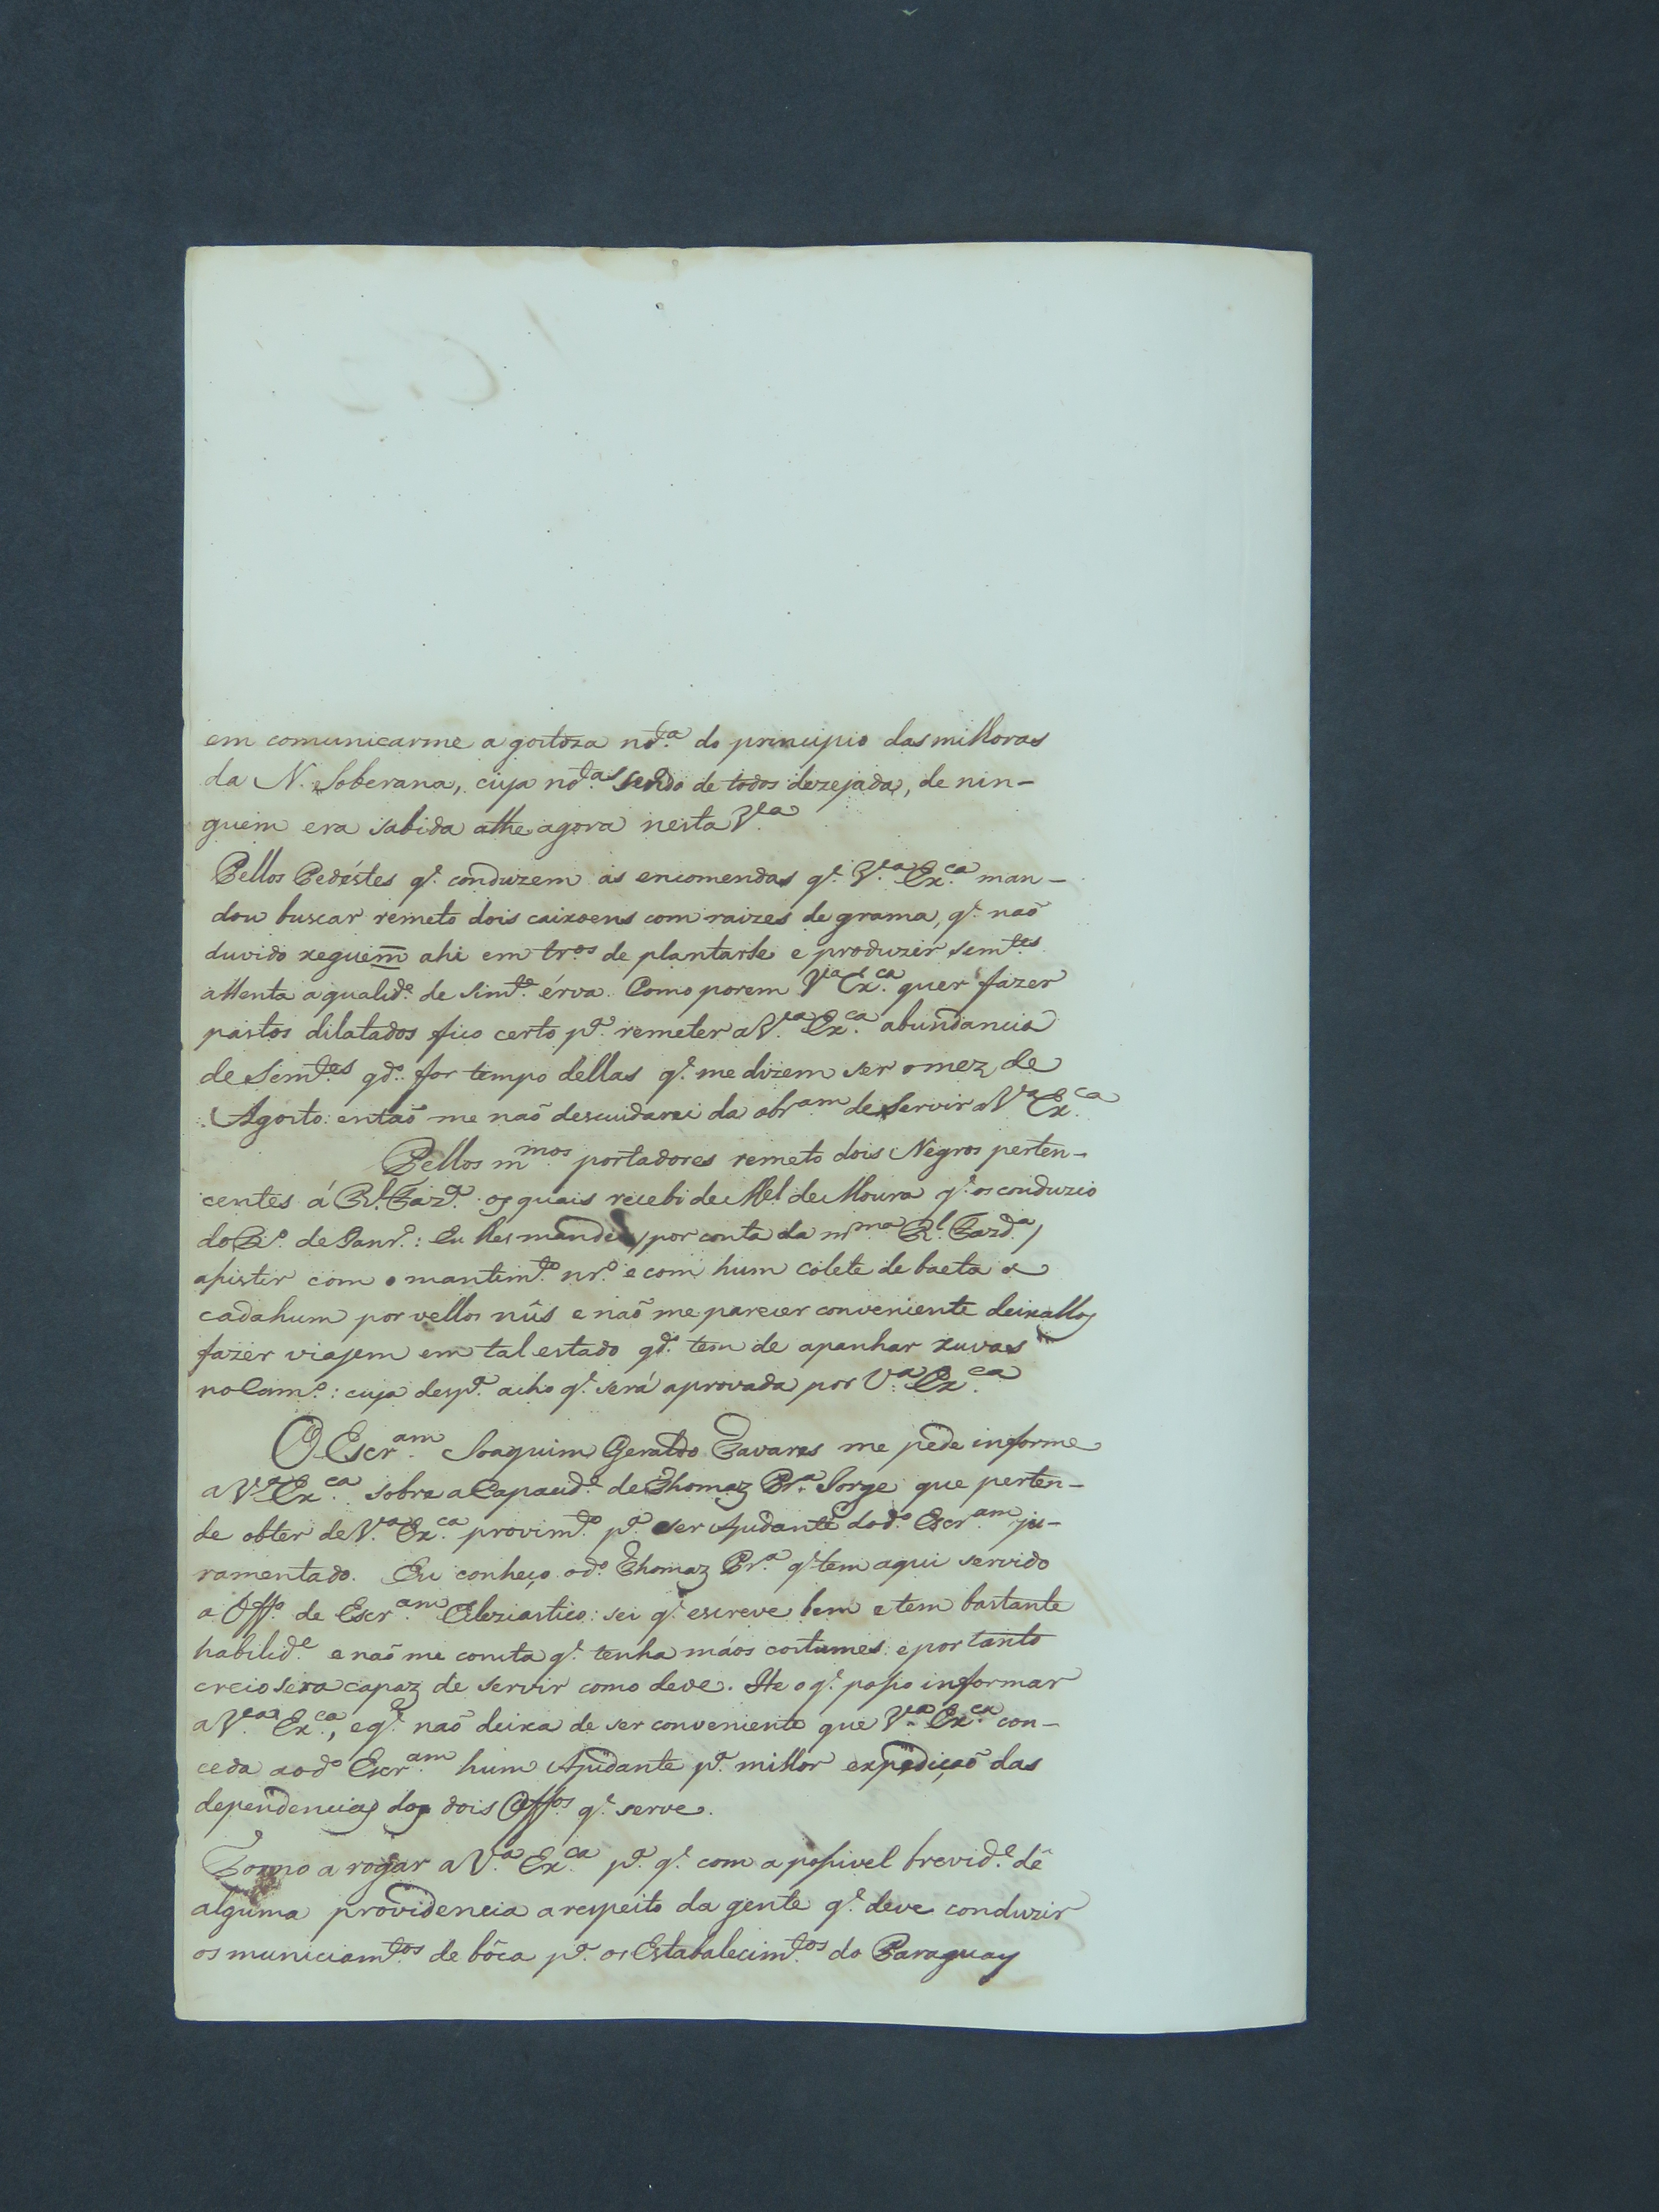 em comunicarme a gostoza not.ª do principio das milhoras
da N. Soberana, cuja not.as sendo de todos dezejada, de nin-
guem era sabida athe agora nesta V.ª
Pellos Pedéstes q.e conduzem as encomendas q.e V.ª Ex.ca man-
dou buscar remeto dois caixoens com raizes de grama, q.e naõ
duvido xeguem ahi em tr.os de plantarse e produzir sem.tes
attenta a qualid.e de sim.e érva. Como porem V.ª Ex.ca quer fazer
pastos dilatados fico certo p.ª remeter a V.ª Ex.ca abundancia
de Sem.tes q.do for tempo dellas q.e me dizem ser o mez de
Agosto: entaõ me naõ descuidarei da obr.am de Servir a V.ª Ex.ca
Pellos m.mos portadores remeto dois Negros perten-
centes á R.l Faz.ª os quais recebi de M.el de Moura q.e os conduzio
do R.º de Janr.º: Eu lhes mandei (por conta da m.ma R.l Fazd.ª)
asistir com o mantim.to nr.º e com hum colete de baeta a
cada hum por vellos nûs e naõ me parecer conveniente deixallos
fazer viajem em tal estado q.do tem de apanhar xuvas
no Cam.º: cuja desp.ª acho q.e será aprovada por V.ª Ex.ca
O Escr.am Joaquim Geraldo Tavares me pede informe
a V.ª Ex.ca sobre a Capacid.e de Thomaz Pr.ª Jorge que perten-
de obter de V.ª Ex.ca provim.to p.ª ser Ajudante do d.º Escr.am ju-
ramentado. Eu conheço o d.º Thomaz Pr.ª q.e tem aqui servido
a Off.º de Escr.am Ecleziastico: sei q.e escreve bem e tem bastante
habilid.e e naõ me consta q.e tenha máos costumes: e por tanto
creio sera capaz de servir como deve. He o q.e posso informar
a V.ª Ex.ca, e q.e naõ deixa de ser conveniente que V.ª Ex.ca con-
ceda ao d.º Escr.am hum Ajudante p.ª milhor expediçaõ das
dependencias dos dois Off.os q.e serve.
Torno a rogar a V.ª Ex.ca p.ª q.e com a posivel brevid.e dê
alguma providencia a respeito da gente q.e deve conduzir
os municiam.tos de bôca p.ª os Estabalecim.tos do Paraguay